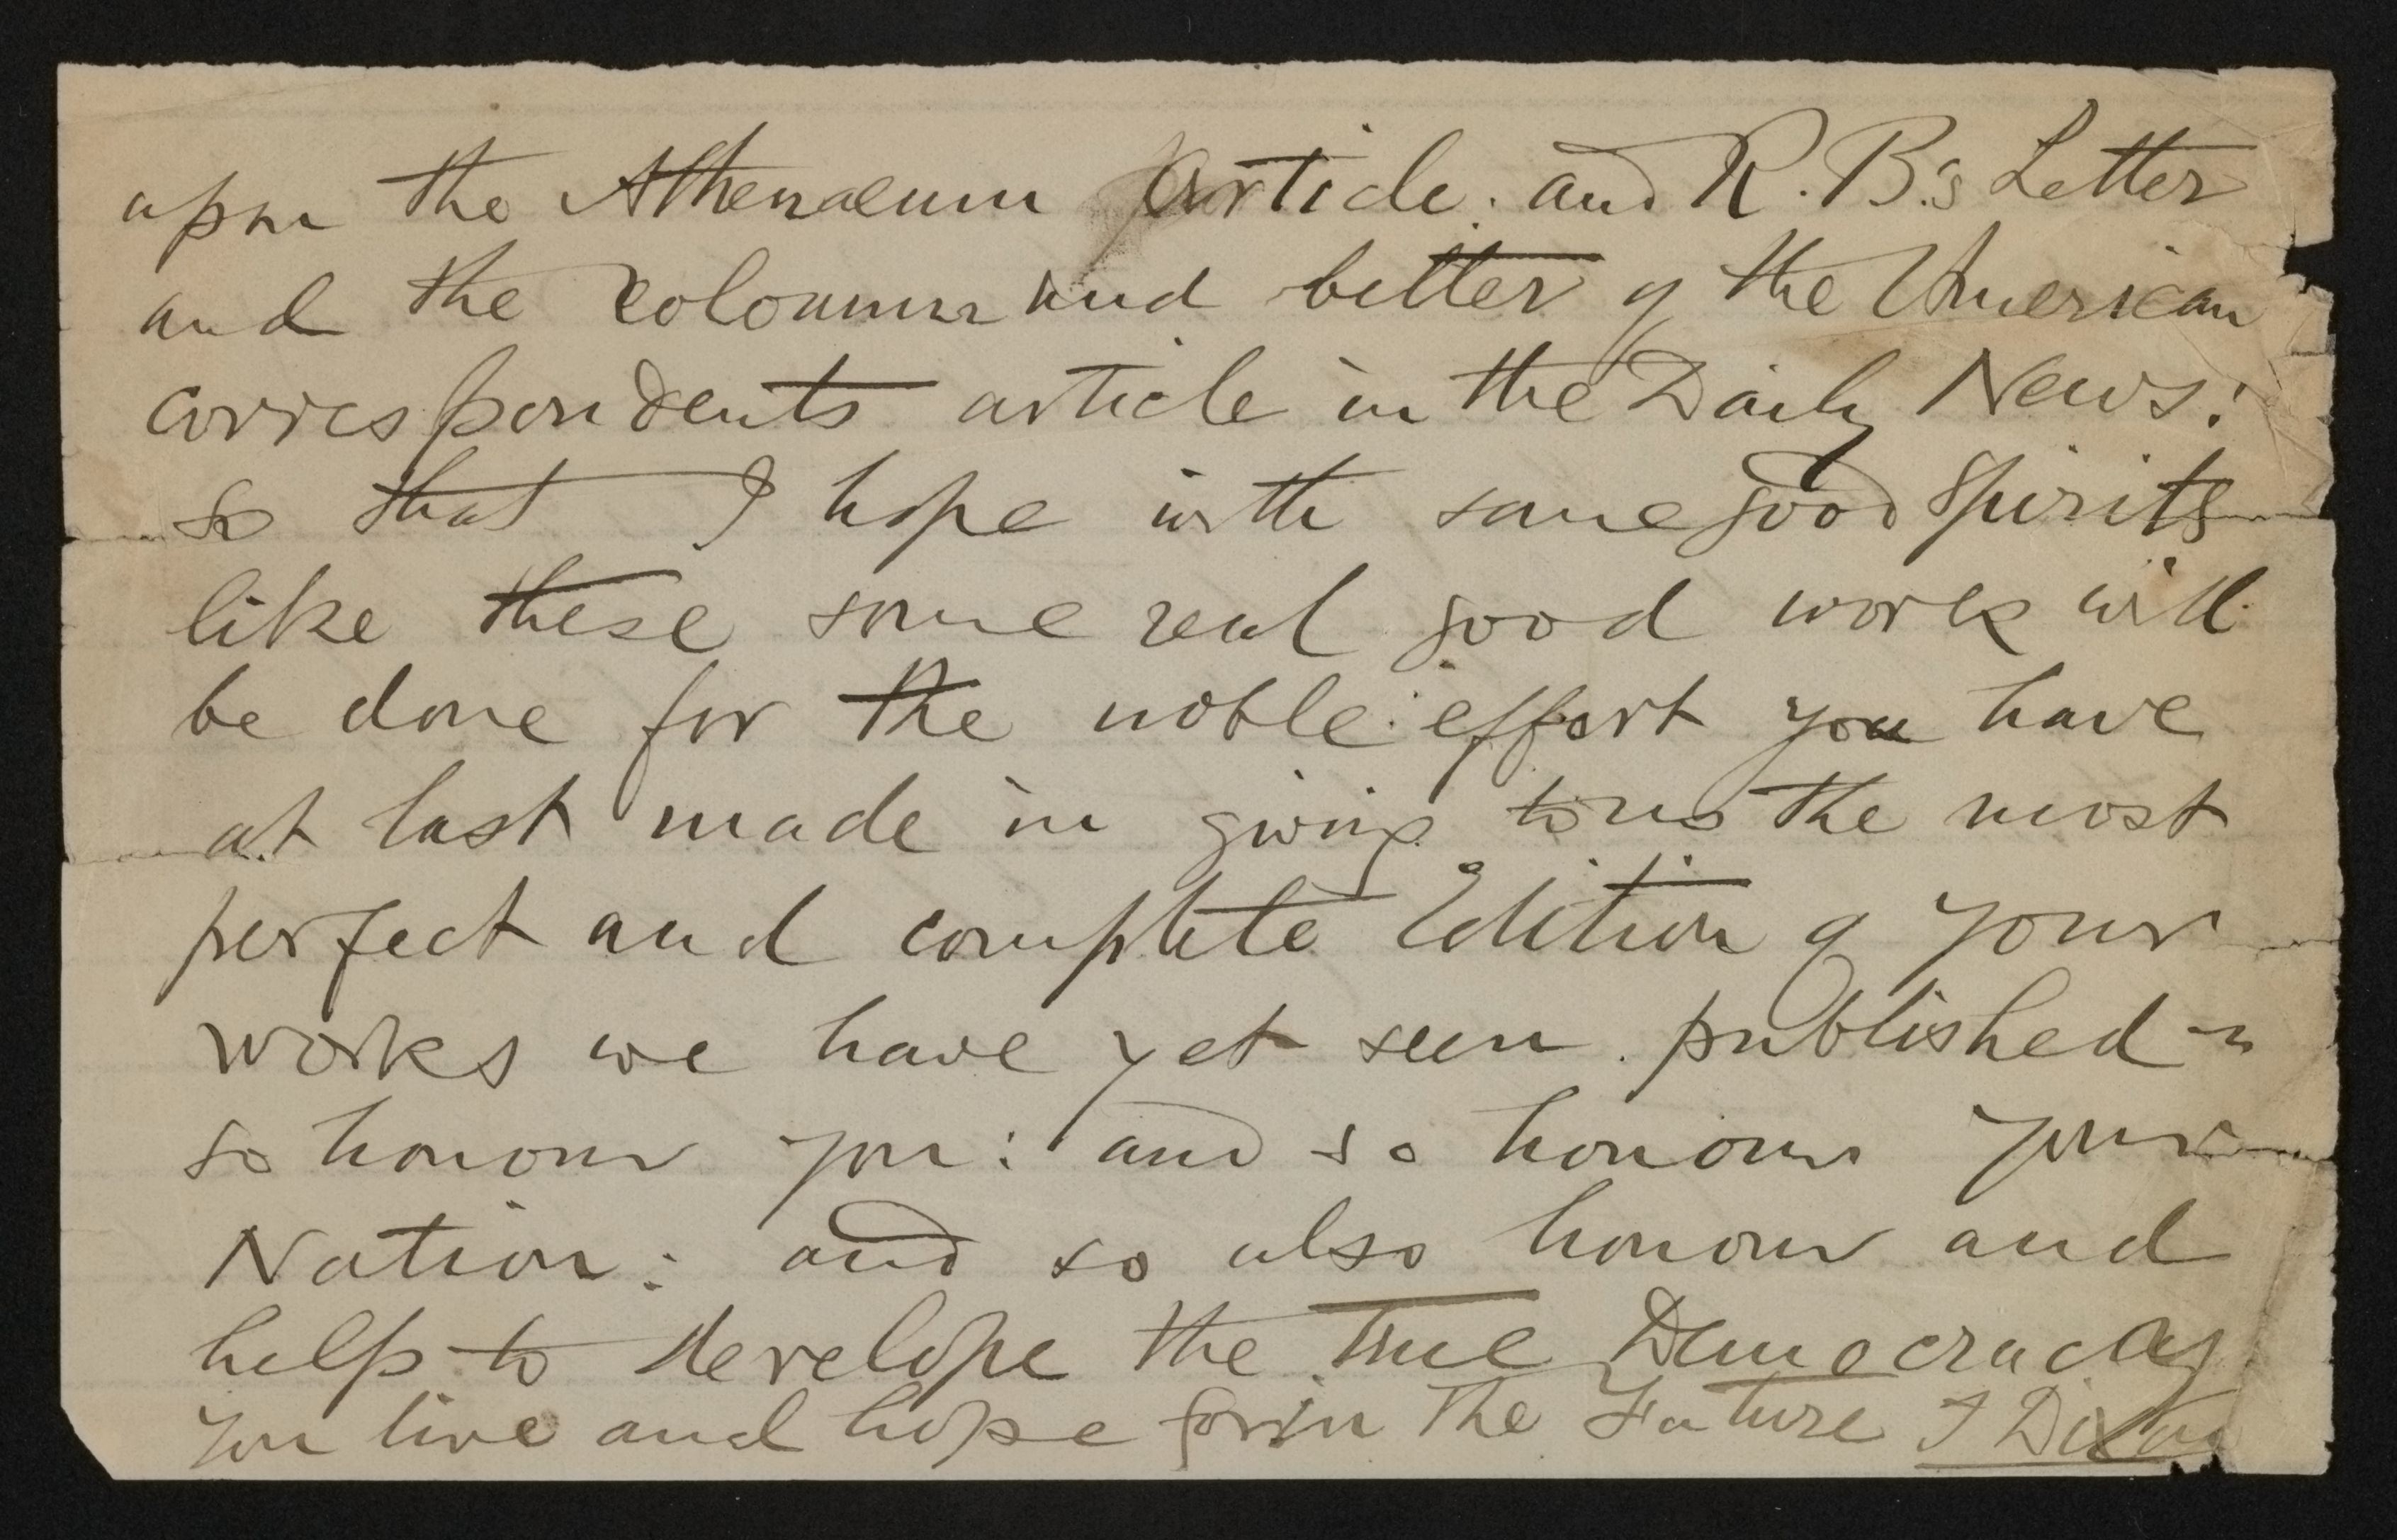 upon the Athenaeum Article. and R. B.s Letter
and the coloumn and better of the American
correspondents article in the Daily News:
so that I hope with some good spirits
like these some real good work will
be done for the noble effort you have
at last made in giving to us the most
perfect and complete Edition of your
works we have yet seen published –
so honour you: and so honour your
Nation: and so also honour and
help to develope the True Democracy
you live and hope for in the Future T Dixon